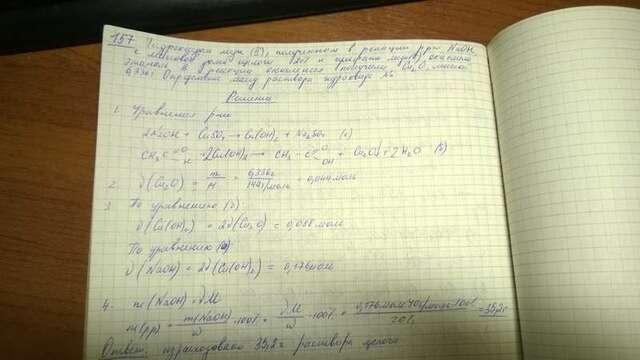 157. Гидроксидом меди (II), полученном в реакции р-ра NaOH
с массовой долей щелочи 20% и сульфата меди(II), окислили
этаналь. В реакции окисления получили Cu₂O массой
6,336г. Определите массу раствора гидроксида Na
Решение
1. Уравнения р-ии
2NaOH + CuSO₄ → Cu(OH)₂ + Na₂SO₄ (1)
CH₃-C=O H + 2Cu(OH)₂ → CH₃-C=O OH + Cu₂O↓ + 2H₂O (2)
2. ν(Cu₂O) = m/M = 6,336г / 144г/моль = 0,044моль
3. По уравнению (2)
ν(Cu(OH)₂) = 2ν(Cu₂O) = 0,088 моль
По уравнению (1)
ν(NaOH) = 2ν(Cu(OH)₂) = 0,176моль
4. m(NaOH) = νM
m(рр) = m(NaOH)/ω · 100% = νM/ω · 100% = 0,176моль·40г/моль·100%/20% = 35,2г
Ответ: израсходовано 35,2г раствора щелочи